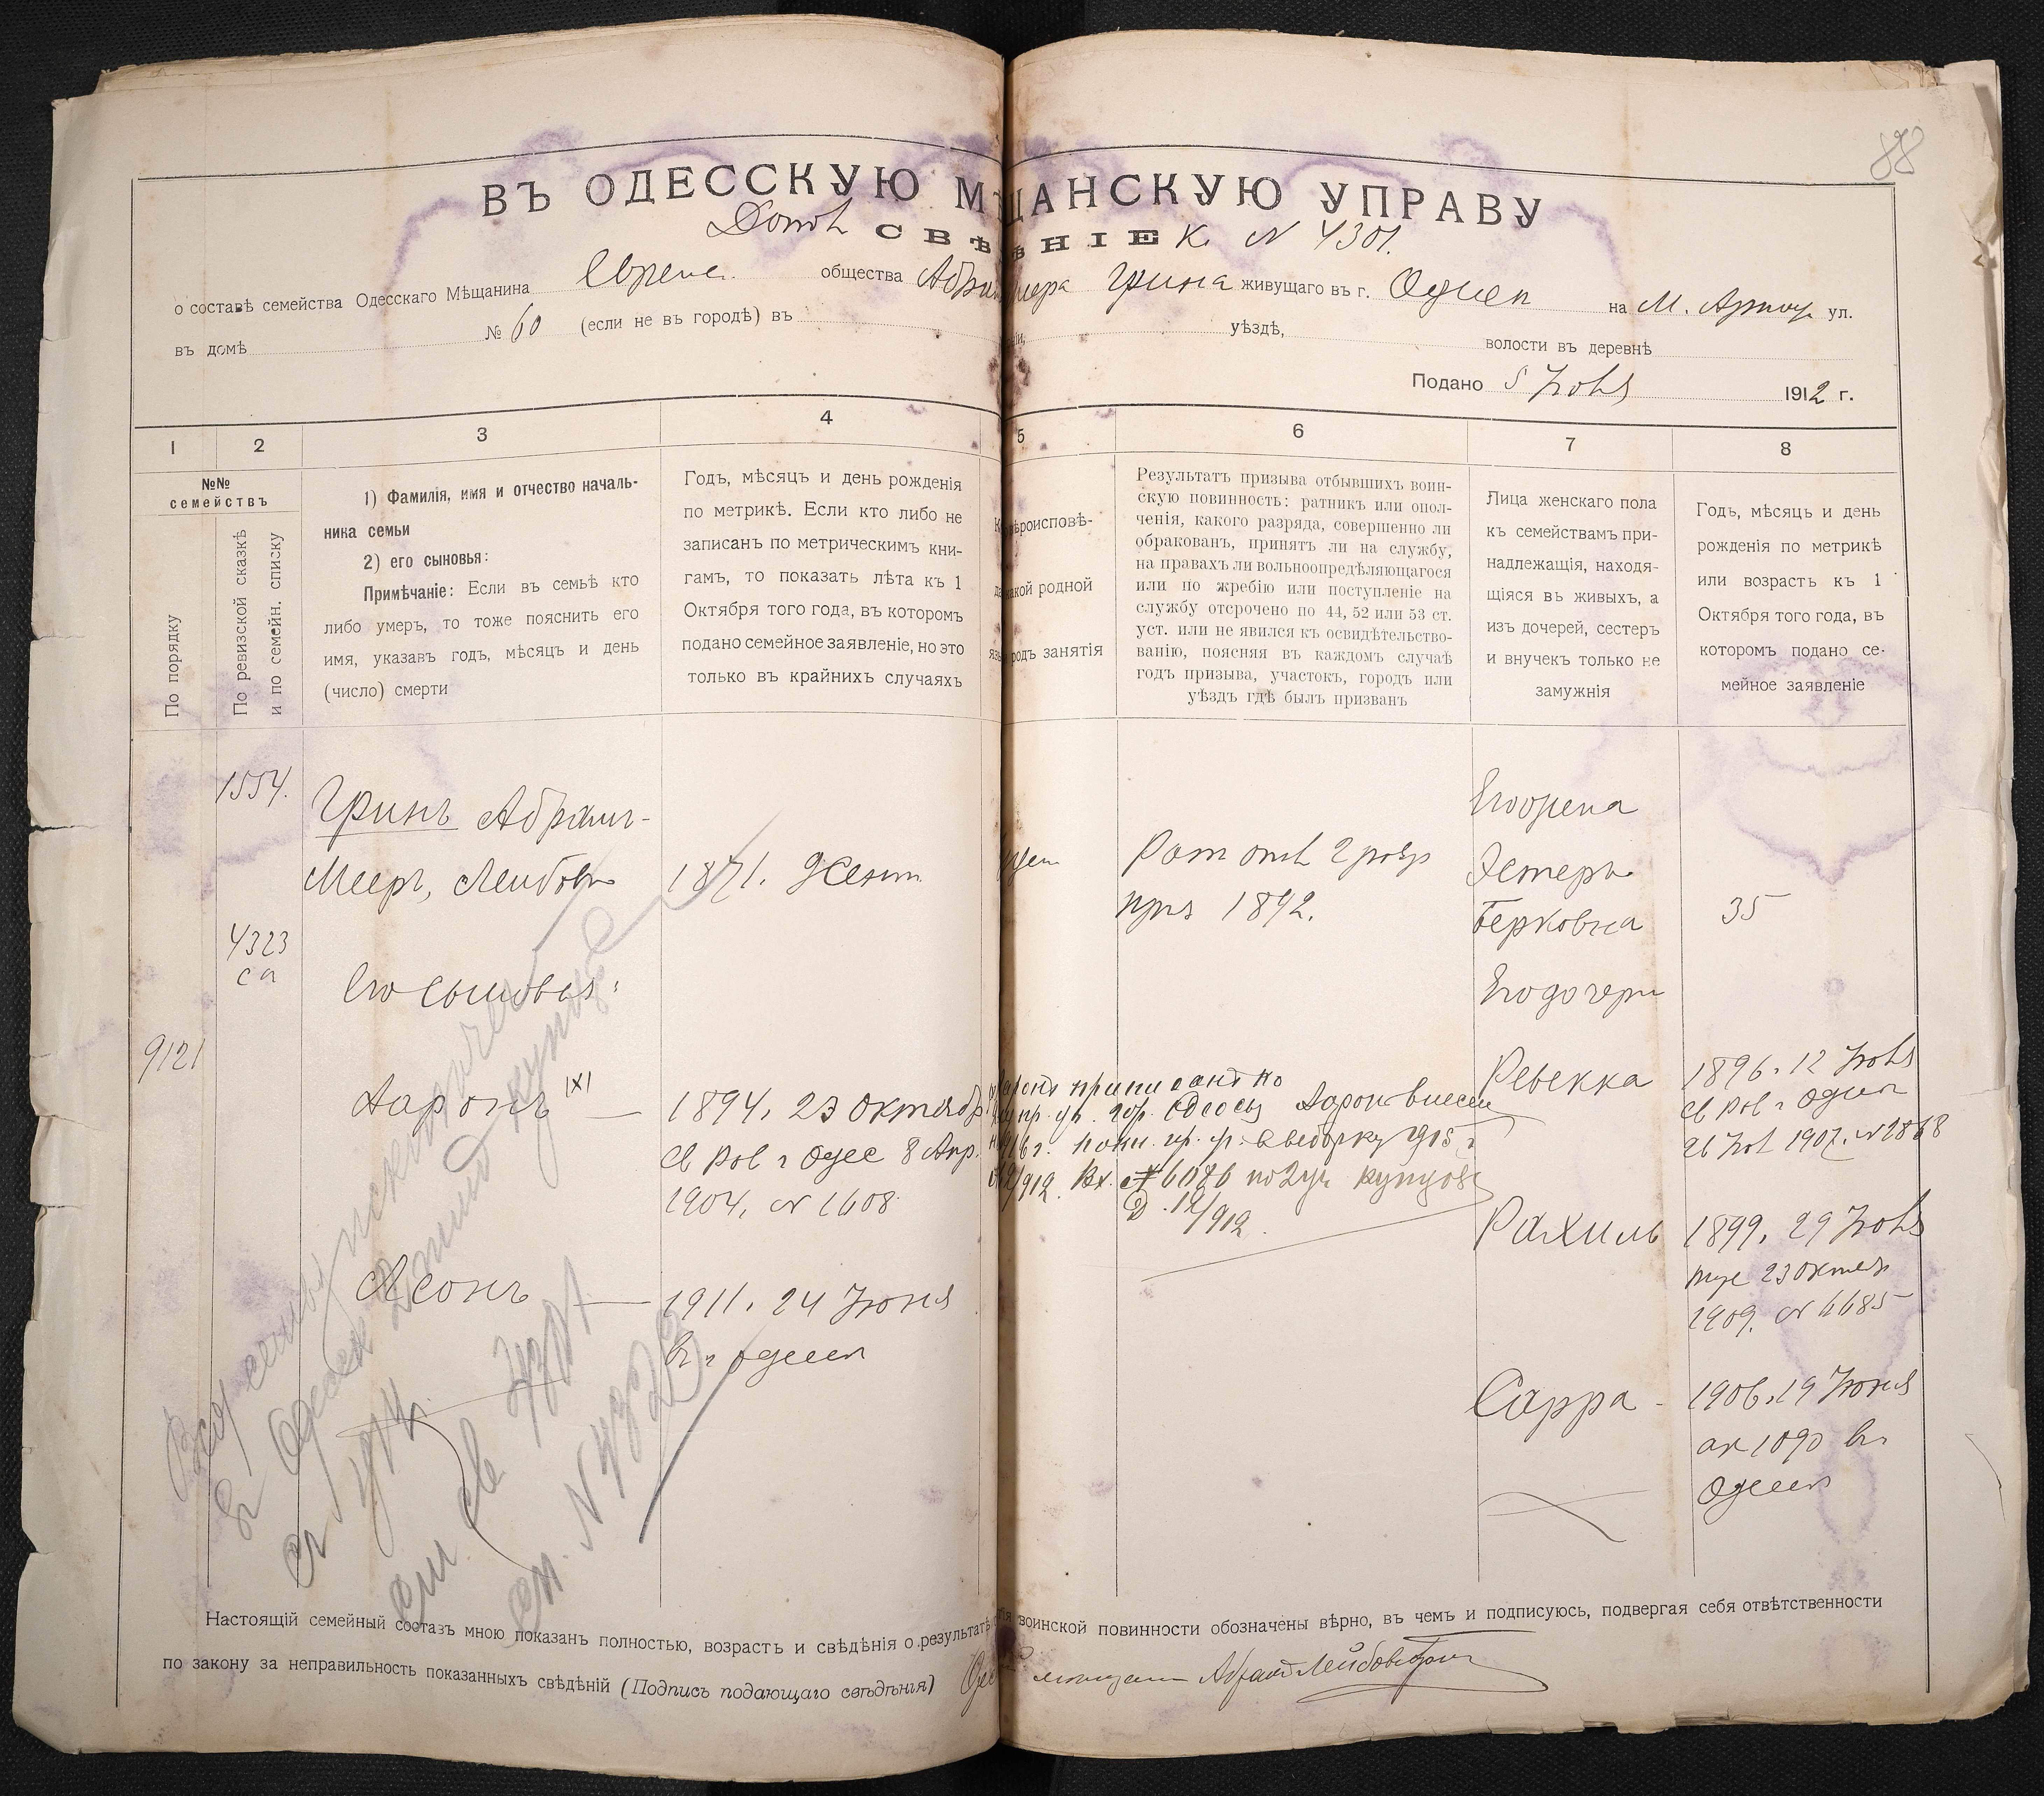 88
ВЪ ОДЕССКУЮ М ЩАНСКУЮ УПРАВУ
СВѢ ѢНІЕ К. № 4301.
о составѣ семейства Одесскаго Мѣщанина общества Грина живущаго въ г. на М. ул.
въ домѣ № 60 (если не въ городѣ) въ уѣздѣ, волости въ деревнѣ
Подано 5 1912 г.
1 2 3 4 5 6 7 8
№№
семействъ
По порядку
По ревизской сказкѣ
и по семейн. списку
1) Фамилія, имя и отчество началь-
ника семьи
2) его сыновья:
Примѣчаніе: Если въ семьѣ кто
либо умеръ, то тоже пояснить его
имя, указавъ годъ, мѣсяцъ и день
(число) смерти
Годъ, мѣсяцъ и день рожденія
по метрикѣ. Если кто либо не
записанъ по метрическимъ кни-
гамъ, то показать лѣта къ 1
Октября того года, въ которомъ
подано семейное заявленіе, но это
только въ крайнихъ случаяхъ
вѣроисповѣ-
акой родной
родъ занятія
Результатъ призыва отбывшихъ воин-
скую повинность: ратникъ или опол-
ченія, какого разряда, совершенно ли
обракованъ, принятъ ли на службу,
на правахъ ли вольноопредѣляющагося
или по жребію или поступленіе на
службу отсрочено по 44, 52 или 53 ст.
уст. или не явился къ освидѣтельство-
ванію, поясняя въ каждомъ случаѣ
годъ призыва, участокъ, городъ или
уѣздъ гдѣ былъ призванъ
Лица женскаго пола
къ семействамъ при-
надлежащія, находя-
щіяся въ живыхъ, а
изъ дочерей, сестеръ
и внучекъ только не
замужнія
Годъ, мѣсяцъ и день
рожденія по метрикѣ
или возрастъ къ 1
Октября того года, въ
которомъ подано се-
мейное заявленіе
1554.
Гринъ Абрамъ-
Мееръ, 1871. 9 Сент.
Рат опол 2 разр
приз 1892.
Эстеръ
Берковна 35
4323
са
Его сыновья:
Его дочери
9121
Ааронъ 1X1 — 1894, 23 Октябр
св Рав г Одес 8 Апр.
1904, № 1608
Ааронъ приписанъ по
упр. гор. Одессы Ааронъ внесен
1915 г.
/912 Вх. № 6086 купцовъ
12/912.
Ревекка 1896. 12
св Рав г Одессы
1907. № 2868
Рахиль 1899, 29
23 Октяб
1909, № 4685
Асонъ — 1911, 24 Іюня
въ г Одессѣ
Сарра - 1906. 19 Іюня
ак 1090 въ
Одессѣ
Всю семью
въ Одессѣ
см. св 4301
см. № 4323
Настоящій семейный составъ мною показанъ полностью, возрастъ и свѣдѣнія о результатѣ воинской повинности обозначены вѣрно, въ чемъ и подписуюсь, подвергая себя отвѣтственности
по закону за неправильность показанныхъ свѣдѣній (Подпись подающаго свѣдѣнія) Абрамъ Лейбовъ Гринъ